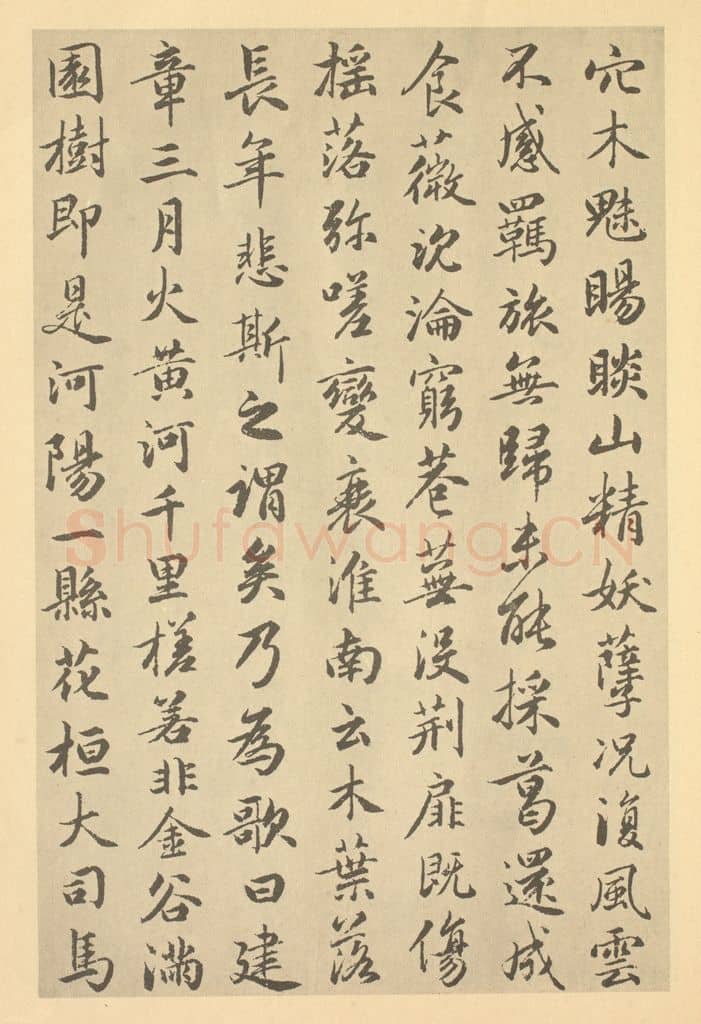 穴木魅睗睒山精妖孽况復風雲
不感羈旅無歸未能採葛還成
食薇沈淪窮巷蕪没荆扉既傷
搖落弥嗟變衰淮南云木葉落
長年悲斯之謂矣乃為歌曰建
章三月火黄河千里槎若非金谷滿
園樹即是河陽一縣花桓大司馬
Shufawang.CN